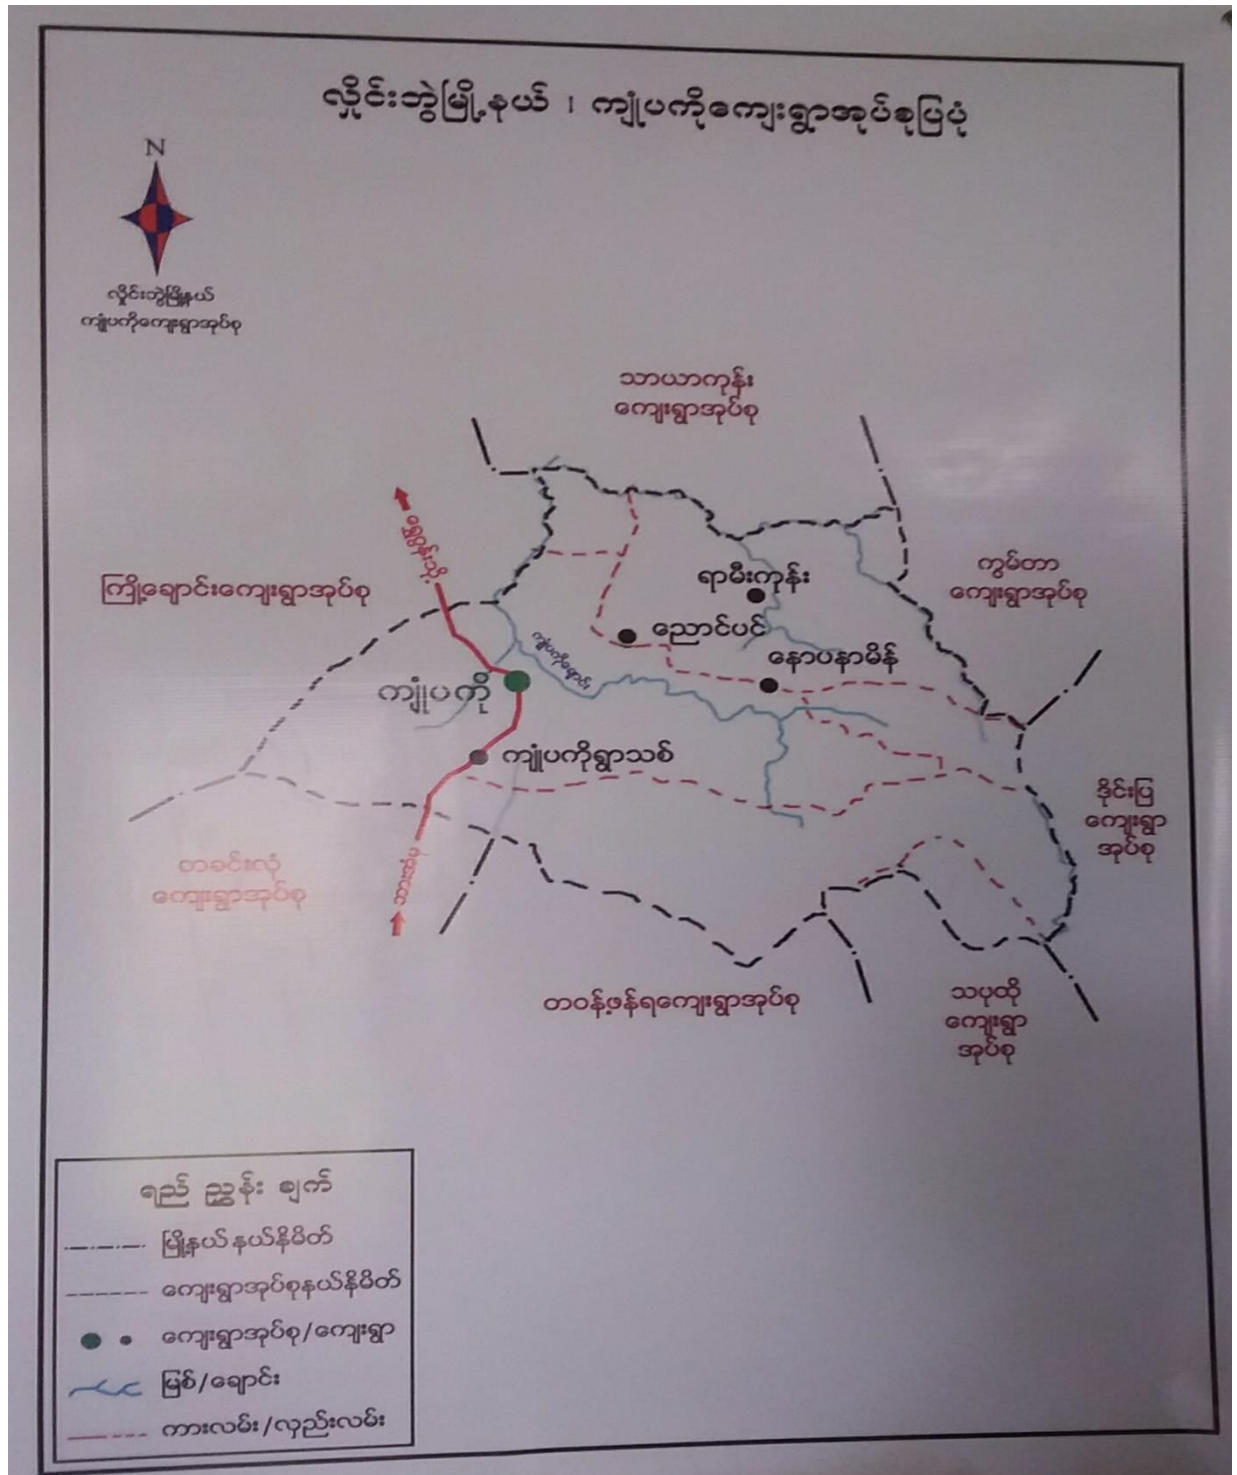 လှိုင်းဘွဲမြို့နယ် ၊ ကျုံပကိုကျေးရွာအုပ်စုပြပုံ
N
လှိုင်းဘွဲမြို့နယ်
ကျုံပကိုကျေးရွာအုပ်စု
သာယာကုန်း
ကျေးရွာအုပ်စု
ရွှေဝန်းသို့
ကြို့ချောင်းကျေးရွာအုပ်စု
ကွမ်တာ
ကျေးရွာအုပ်စု
ရာမီးကုန်း
ညောင်ပင်
ကျုံပကိုချောင်း
နောပနာမိန်
ကျုံပကို
ကျုံပကိုရွာသစ်
ဒိုင်းပြ
ကျေးရွာ
အုပ်စု
တခင်းလုံ
ကျေးရွာအုပ်စု
တဝန့်ဖန်ရကျေးရွာအုပ်စု
သပုထို
ကျေးရွာ
အုပ်စု
ရည် ညွှန်း ချက်
မြို့နယ်နယ်နိမိတ်
ကျေးရွာအုပ်စုနယ်နိမိတ်
ကျေးရွာအုပ်စု/ကျေးရွာ
မြစ်/ချောင်း
ကားလမ်း/လှည်းလမ်း